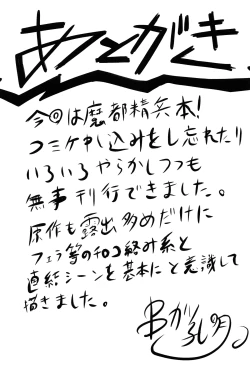 あとがき
今回は魔都精兵本!
コミケ申し込みをし忘れたり
いろいろやらかしつつも
無事刊行できました。
原作も露出多めだけに
フェラ等の和口絡み系と
直結シーンを基本にと意識して
描きました。
Bが孔明。